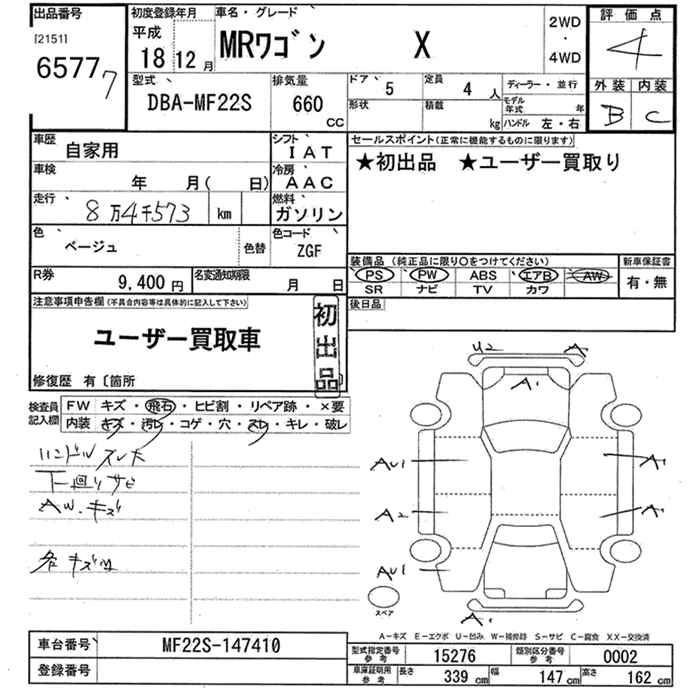 出品番号
[2151]
65777
初度登録年月
平成
18 12 月
車名・グレード
MRワゴン X
2WD
・
4WD
評価点
4
外装 内装
B C
型式
DBA-MF22S
排気量
660
CC
ドア 5
定員 4 人
ディーラー・並行
形状
積載 kg
モデル年式 年
ハンドル 左・右
車歴
自家用
シフト
IAT
セールスポイント(正常に機能するものに限ります)
★初出品 ★ユーザー買取り
車検
年 月( 日)
冷房
AAC
走行
8万4千573 km
燃料
ガソリン
色
ベージュ
色替
色コード
ZGF
装備品 (純正品に限り○をつけてください)
新車保証書
PS PW ABS エアB AW
有・無
SR ナビ TV カワ
R券
9,400 円
名変通知期限
月 日
後日品
注意事項申告欄(不具合内容等は具体的に記入して下さい)
ユーザー買取車
初出品
修復歴 有〔箇所
検査員記入欄
FW キズ・飛石・ヒビ割・リペア跡・×要
内装 キズ・汚レ・コゲ・穴・スレ・キレ・破レ
ハンドルスレ大
下廻りサビ
AW.キズ
U2 A
A1
AU1 A1
A2 A1
AU1
A1
スペア
A-キズ E-エクボ U-凹み W-補修跡 S-サビ C-腐食 XX-交換済
車台番号
MF22S-147410
登録番号
型式指定番号 参考
15276
類別区分番号 参考
0002
車庫証明用 参考
長さ 339 cm
幅 147 cm
高さ 162 cm